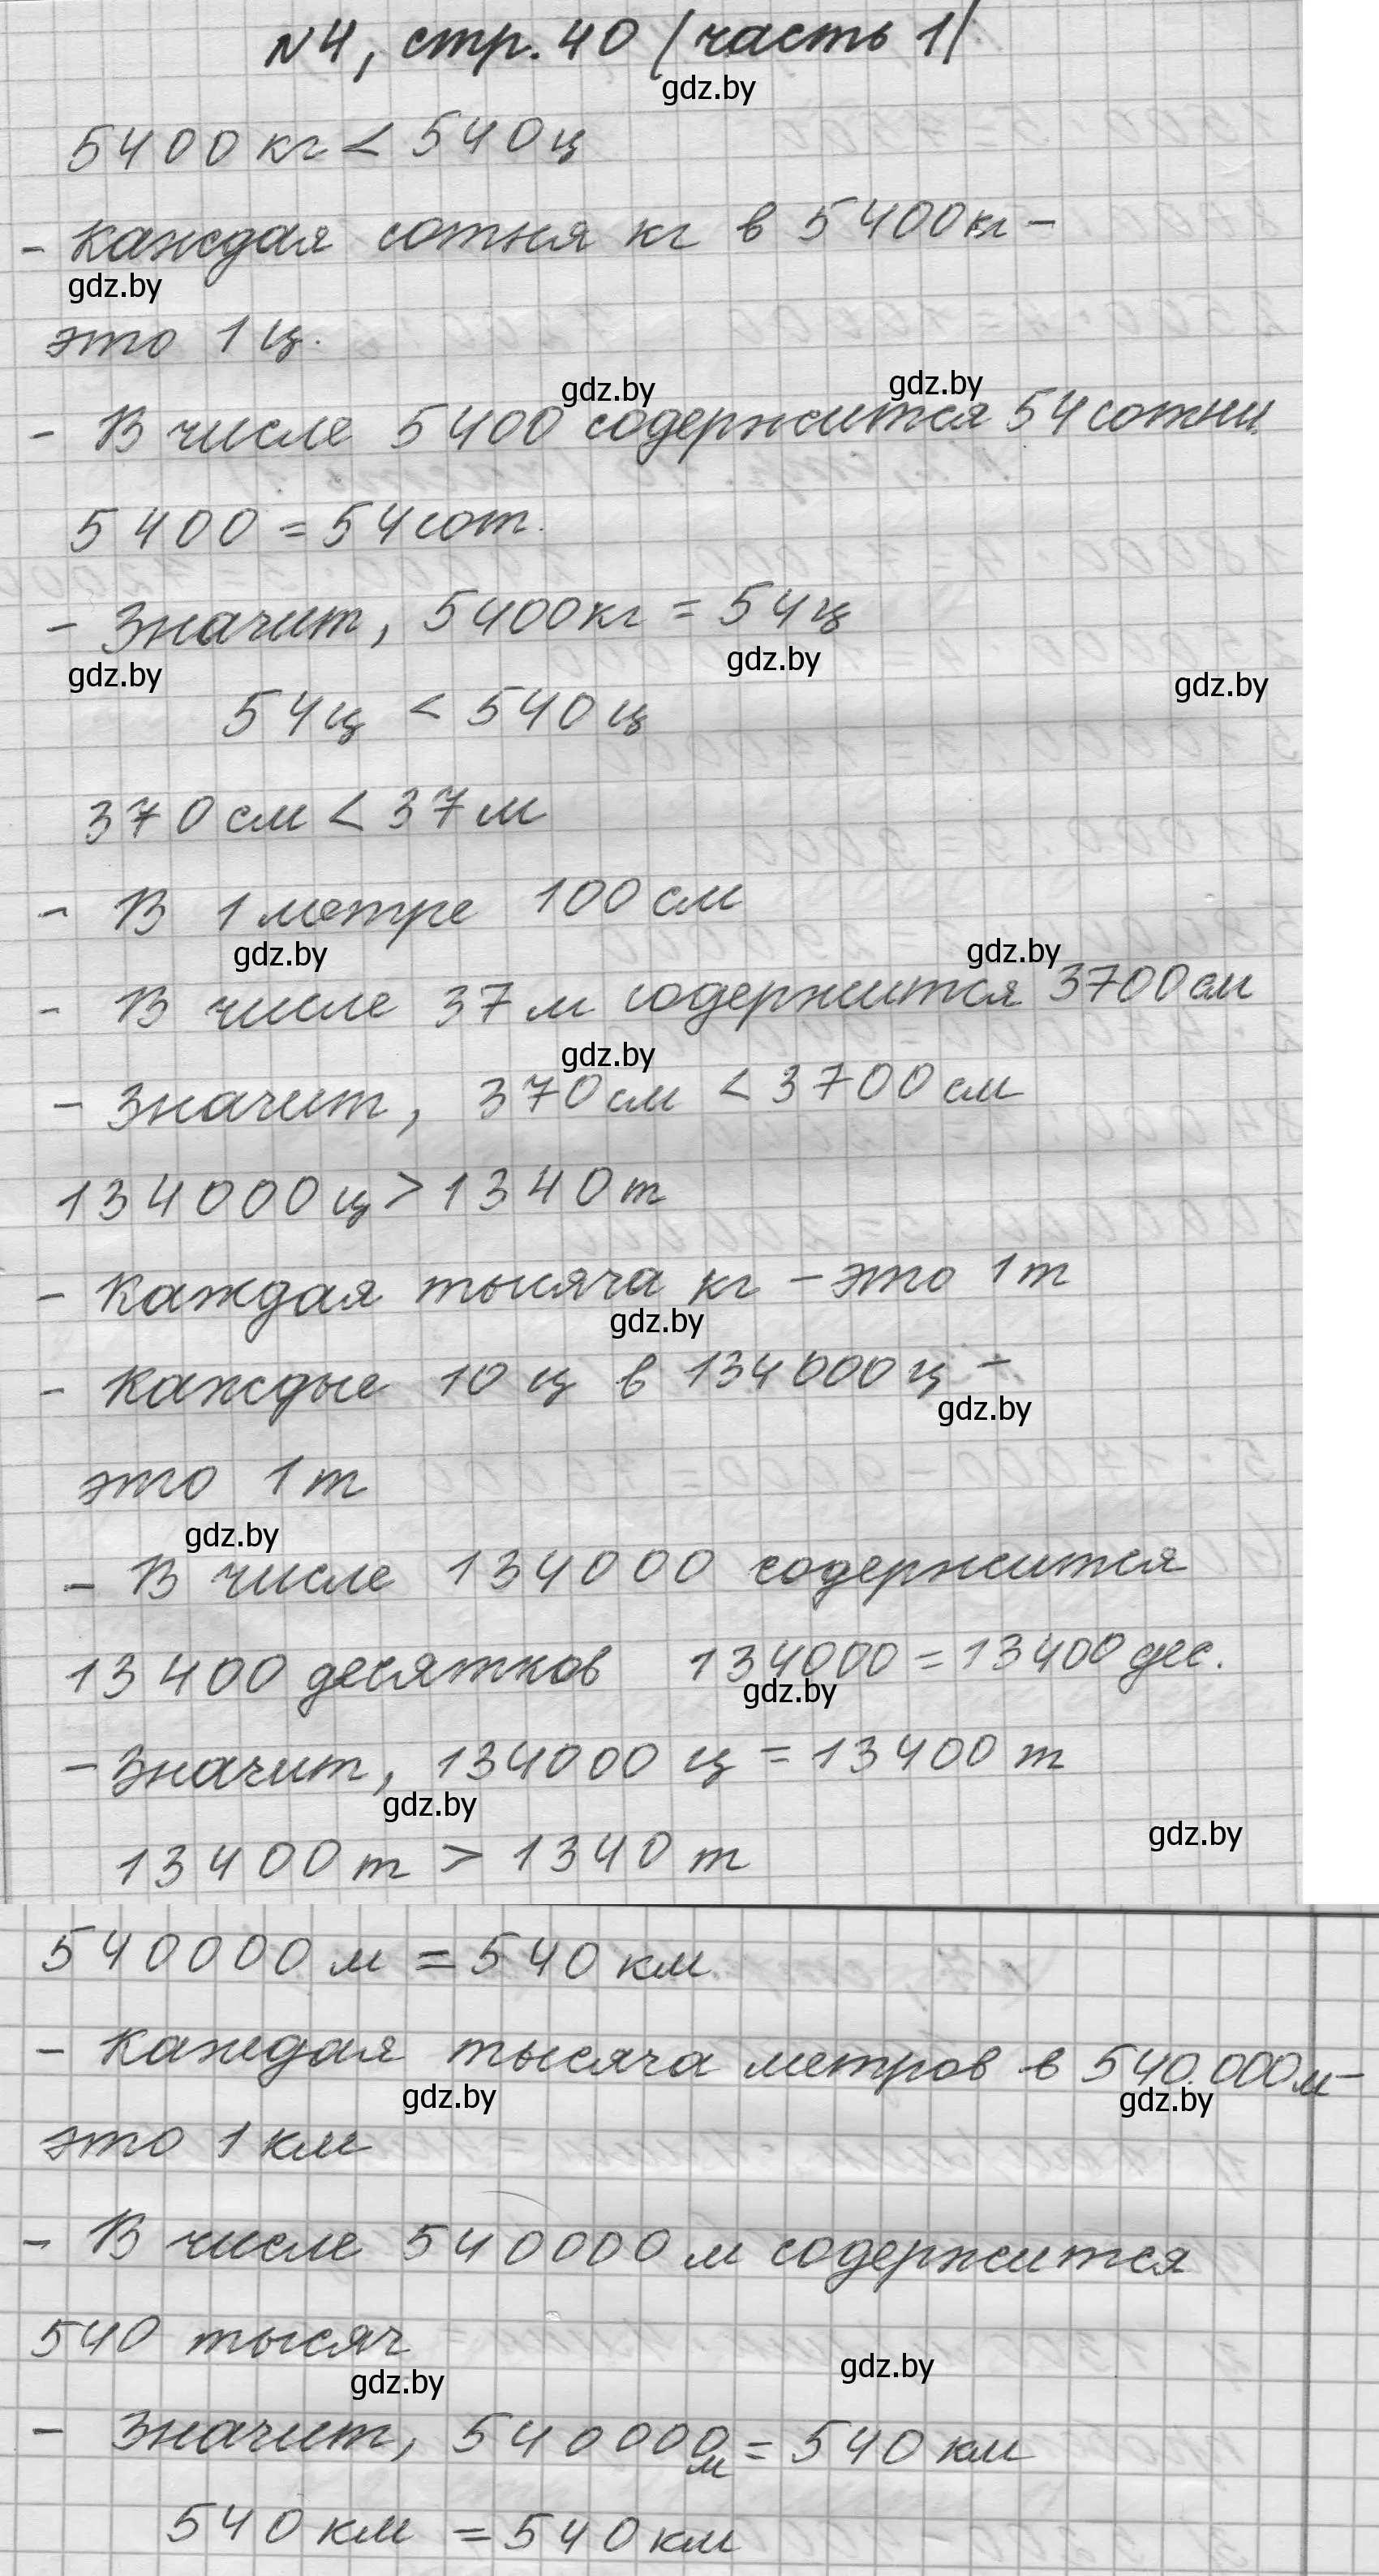 №4, стр. 40 (часть 1)
gdz.by
5400 кг < 540 ц
- Каждая сотня кг в 5400 кг -
gdz.by
это 1 ц.
gdz.by gdz.by
- В числе 5400 содержится 54 сотни.
5400 = 54 сот.
- Значит, 5400 кг = 54 ц
gdz.by gdz.by gdz.by
54 ц < 540 ц
370 см < 37 м
- В 1 метре 100 см
gdz.by gdz.by
- В числе 37 м содержится 3700 см
gdz.by
- Значит, 370 см < 3700 см
134000 ц > 1340 т
- Каждая тысяча кг - это 1 т
gdz.by
- Каждые 10 ц в 134000 ц -
gdz.by
это 1 т
gdz.by
- В числе 134000 содержится
13400 десятков 134000 = 13400 дес.
gdz.by
- Значит, 134000 ц = 13400 т
gdz.by gdz.by
13400 т > 1340 т
540000 м = 540 км.
- Каждая тысяча метров в 540.000 м -
gdz.by gdz.by
это 1 км
- В числе 540000 м содержится
540 тысяч
gdz.by gdz.by
- Значит, 540000 м = 540 км
540 км = 540 км